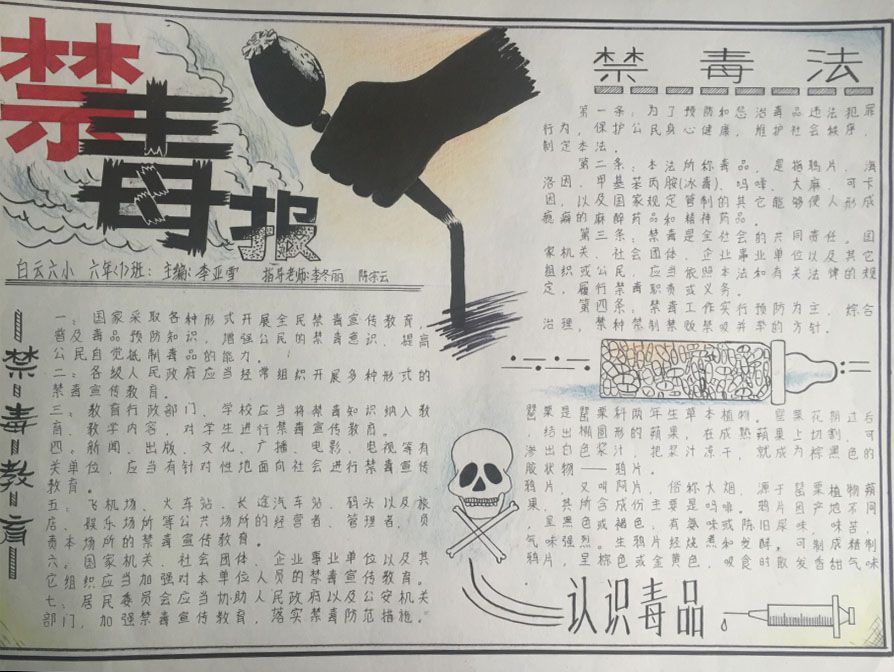 禁毒报
白云六小 六年(1)班: 主编:李亚雪 指导老师:李冬丽 陈宗云
禁毒教育
一:国家采取各种形式开展全民禁毒宣传教育,
普及毒品预防知识,增强公民的禁毒意识,提高
公民自觉抵制毒品的能力。
二:各级人民政府应当经常组织开展多种形式的
禁毒宣传教育。
三:教育行政部门、学校应当将禁毒知识纳入教
育、教学内容,对学生进行禁毒宣传教育。
四:新闻、出版、文化、广播、电影、电视等有
关单位,应当有针对性地面向社会进行禁毒宣传
教育。
五:飞机场、火车站、长途汽车站、码头以及旅
店、娱乐场所等公共场所的经营者、管理者,负
责本场所的禁毒宣传教育。
六:国家机关、社会团体、企业事业单位以及其
它组织应当加强对本单位人员的禁毒宣传教育。
七:居民委员会应当协助人民政府以及公安机关
部门,加强禁毒宣传教育,落实禁毒防范措施。
禁毒法
第一条:为了预防和惩治毒品违法犯罪
行为,保护公民身心健康,维护社会秩序,
制定本法。
第二条:本法所称毒品,是指鸦片、海
洛因、甲基苯丙胺(冰毒)、吗啡、大麻、可卡
因,以及国家规定管制的其它能够使人形成
瘾癖的麻醉药品和精神药品。
第三条:禁毒是全社会的共同责任。国
家机关、社会团体、企业事业单位以及其它
组织或公民,应当依照本法和有关法律的规
定,履行禁毒职责或义务。
第四条:禁毒工作实行预防为主,综合
治理,禁种禁制禁贩禁吸并举的方针。
罂粟是罂粟科两年生草本植物。罂粟花期过后
,结出椭圆形的蒴果,在成熟蒴果上切割,可
渗出白色浆汁,把浆汁凉干,就成为棕黑色的
胶状物——鸦片。
鸦片,又叫阿片,俗称大烟,源于罂粟植物蒴
果,其所含成份主要是吗啡。鸦片因产地不同
,呈黑色或褐色,有氨味或陈旧尿味,味苦,
气味强烈。生鸦片经烧煮和发酵。可制成精制
鸦片,呈棕色或金黄色,吸食时散发香甜气味
认识毒品